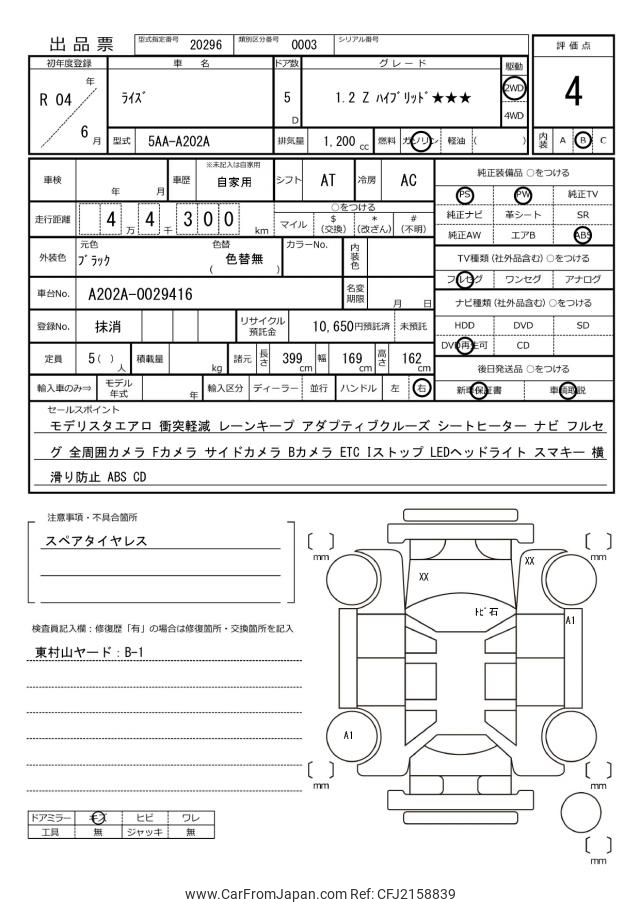 出品票
型式指定番号 20296 類別区分番号 0003 シリアル番号
評価点
4
内装 A B C
初年度登録 車名 ドア数 グレード 駆動
R 04 年 6 月
ライズ 5 D 1.2 Z ハイブリッド★★★ 2WD 4WD
型式 5AA-A202A 排気量 1,200 cc 燃料 ガソリン 軽油 ( )
車検 年 月 車歴 ※未記入は自家用 自家用 シフト AT 冷房 AC
走行距離 4 万 4 千 3 0 0 km
○をつける
マイル $(交換) *(改ざん) #(不明)
外装色 元色 ブラック 色替 ( 色替無 ) カラーNo. 内装色
車台No. A202A-0029416 名変期限 月 日
登録No. 抹消 リサイクル預託金 10,650円預託済 未預託
定員 5 ( ) 人 積載量 kg 諸元 長さ 399 cm 幅 169 cm 高さ 162 cm
輸入車のみ⇒ モデル年式 年 輸入区分 ディーラー 並行 ハンドル 左 右
純正装備品 ○をつける
PS PW 純正TV
純正ナビ 革シート SR
純正AW エアB ABS
TV種類 (社外品含む) ○をつける
フルセグ ワンセグ アナログ
ナビ種類 (社外品含む) ○をつける
HDD DVD SD
DVD再生可 CD
後日発送品 ○をつける
新車保証書 車輌取説
セールスポイント
モデリスタエアロ 衝突軽減 レーンキープ アダプティブクルーズ シートヒーター ナビ フルセ
グ 全周囲カメラ Fカメラ サイドカメラ Bカメラ ETC Iストップ LEDヘッドライト スマキー 横
滑り防止 ABS CD
注意事項・不具合箇所
スペアタイヤレス
検査員記入欄:修復歴「有」の場合は修復箇所・交換箇所を記入
東村山ヤード:B-1
ドアミラー キズ ヒビ ワレ
工具 無 ジャッキ 無
mm
mm
XX
XX
トビ石
A1
A1
mm
mm
mm
www.CarFromJapan.com Ref: CFJ2158839